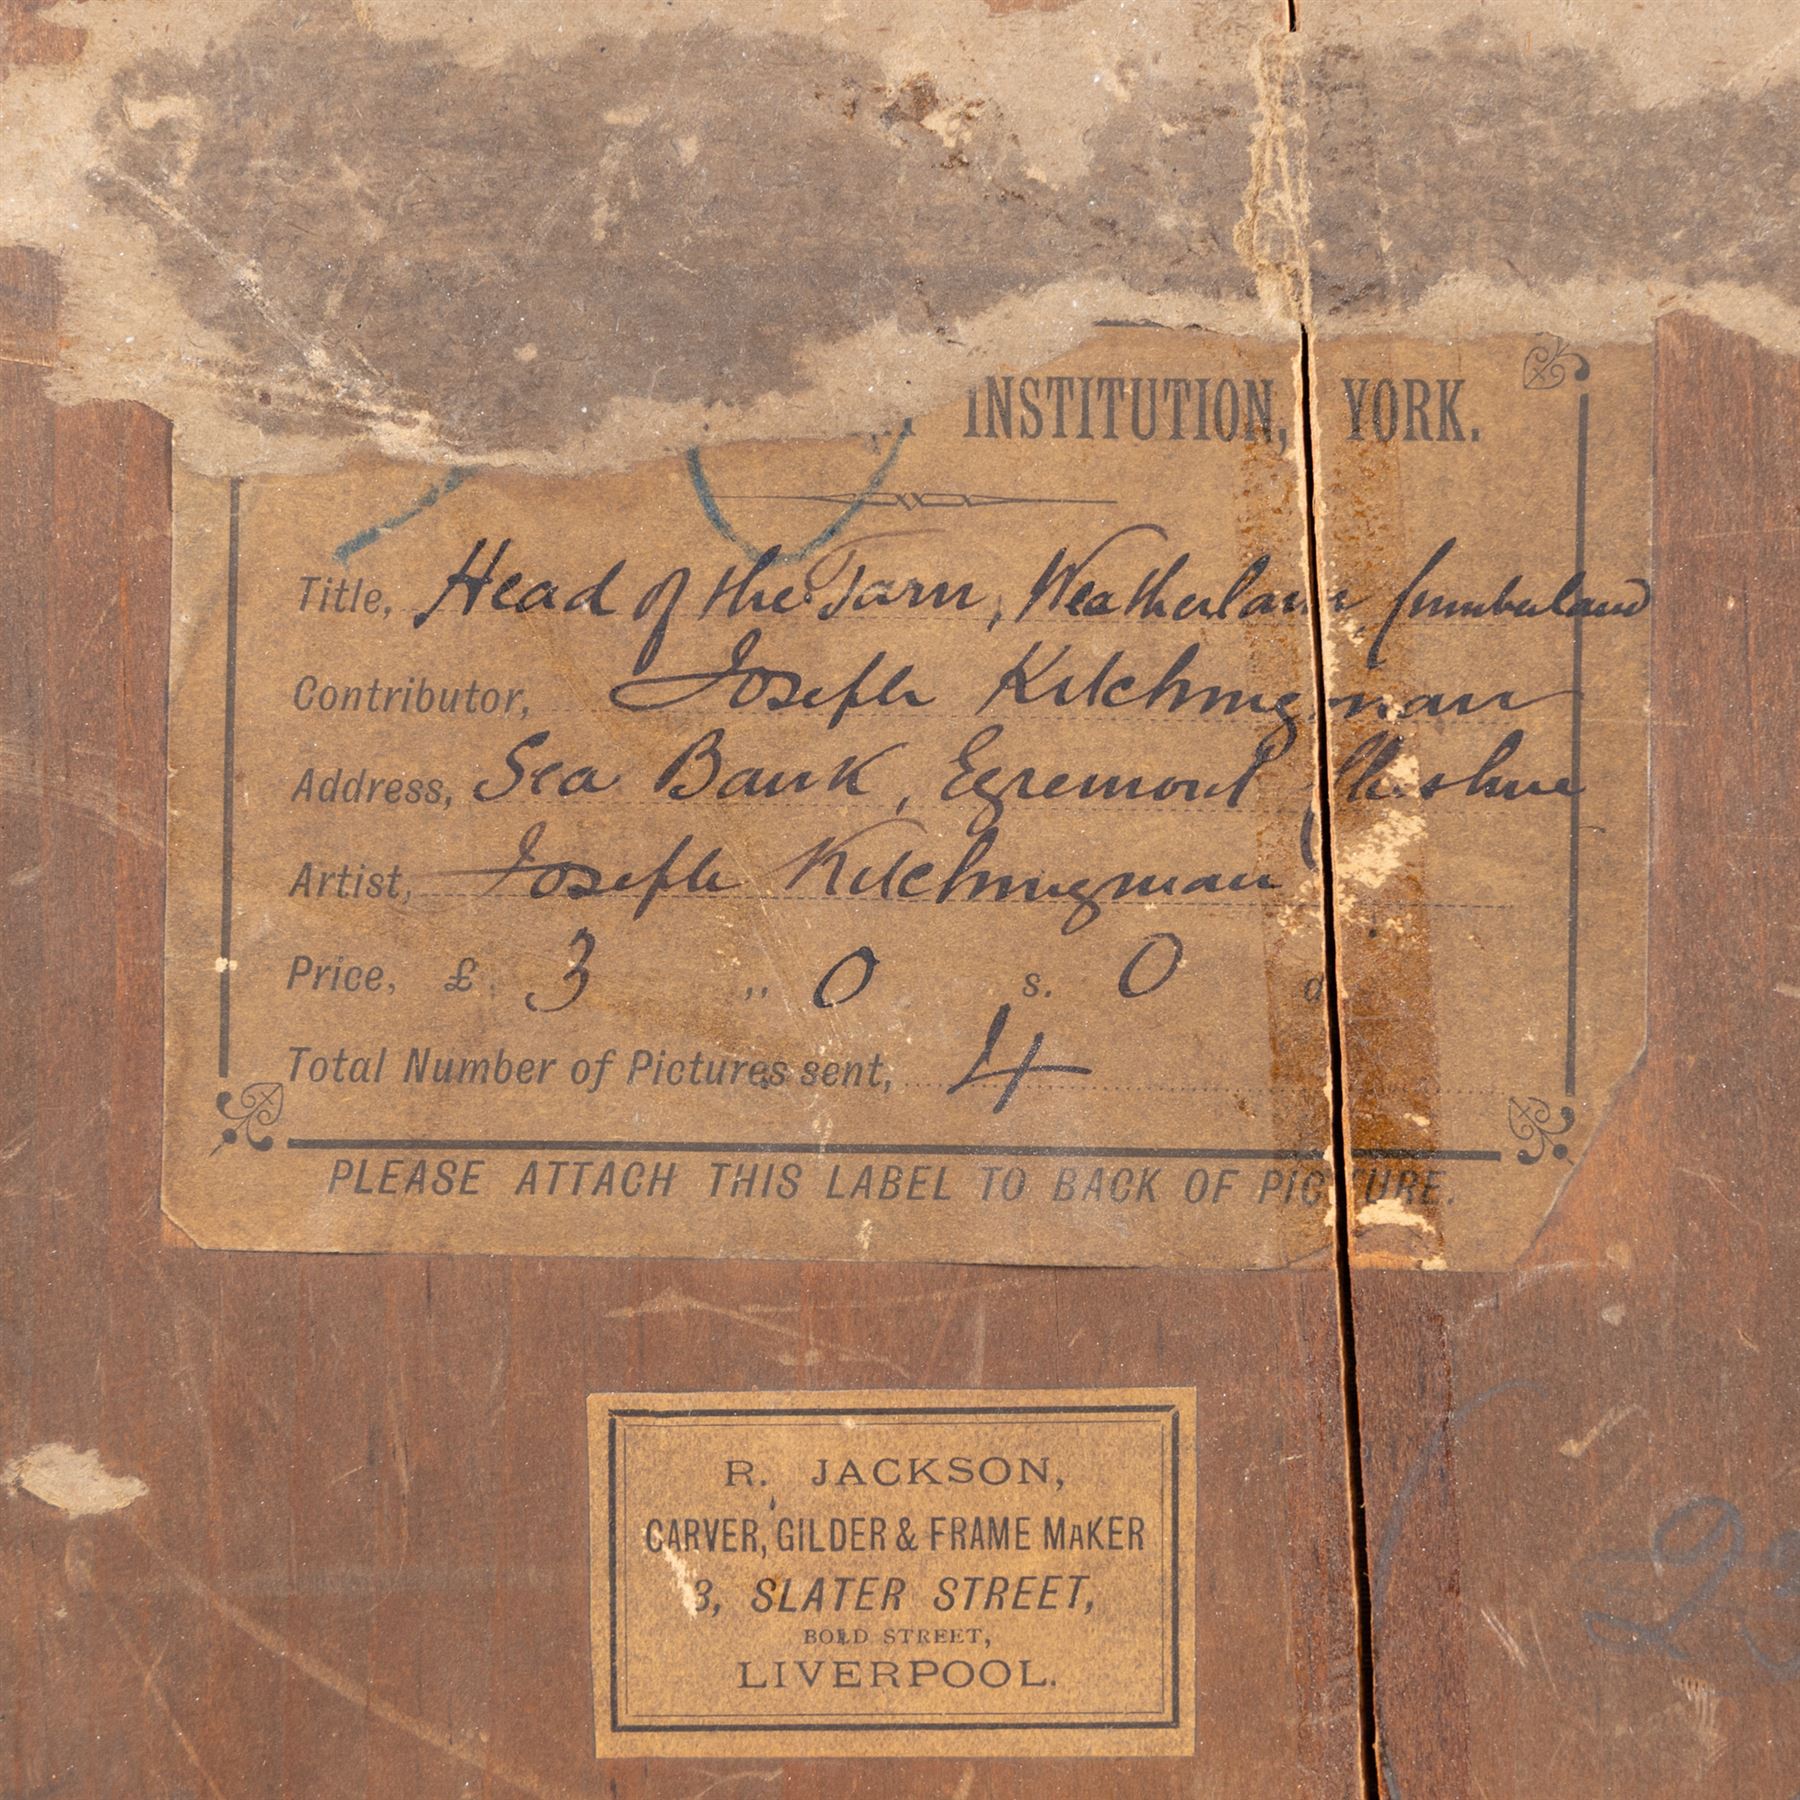 INSTITUTION, YORK.
Title, Head of the Tarn, Weatherlam, Cumberland
Contributor, Joseph Kitchingman
Address, Sea Bank, Egremont Cheshire
Artist, Joseph Kitchingman
Price, £ 3 „ 0 s. 0 d
Total Number of Pictures sent, 4
PLEASE ATTACH THIS LABEL TO BACK OF PICTURE.
R. JACKSON,
CARVER, GILDER & FRAME MAKER
3, SLATER STREET,
BOLD STREET,
LIVERPOOL.